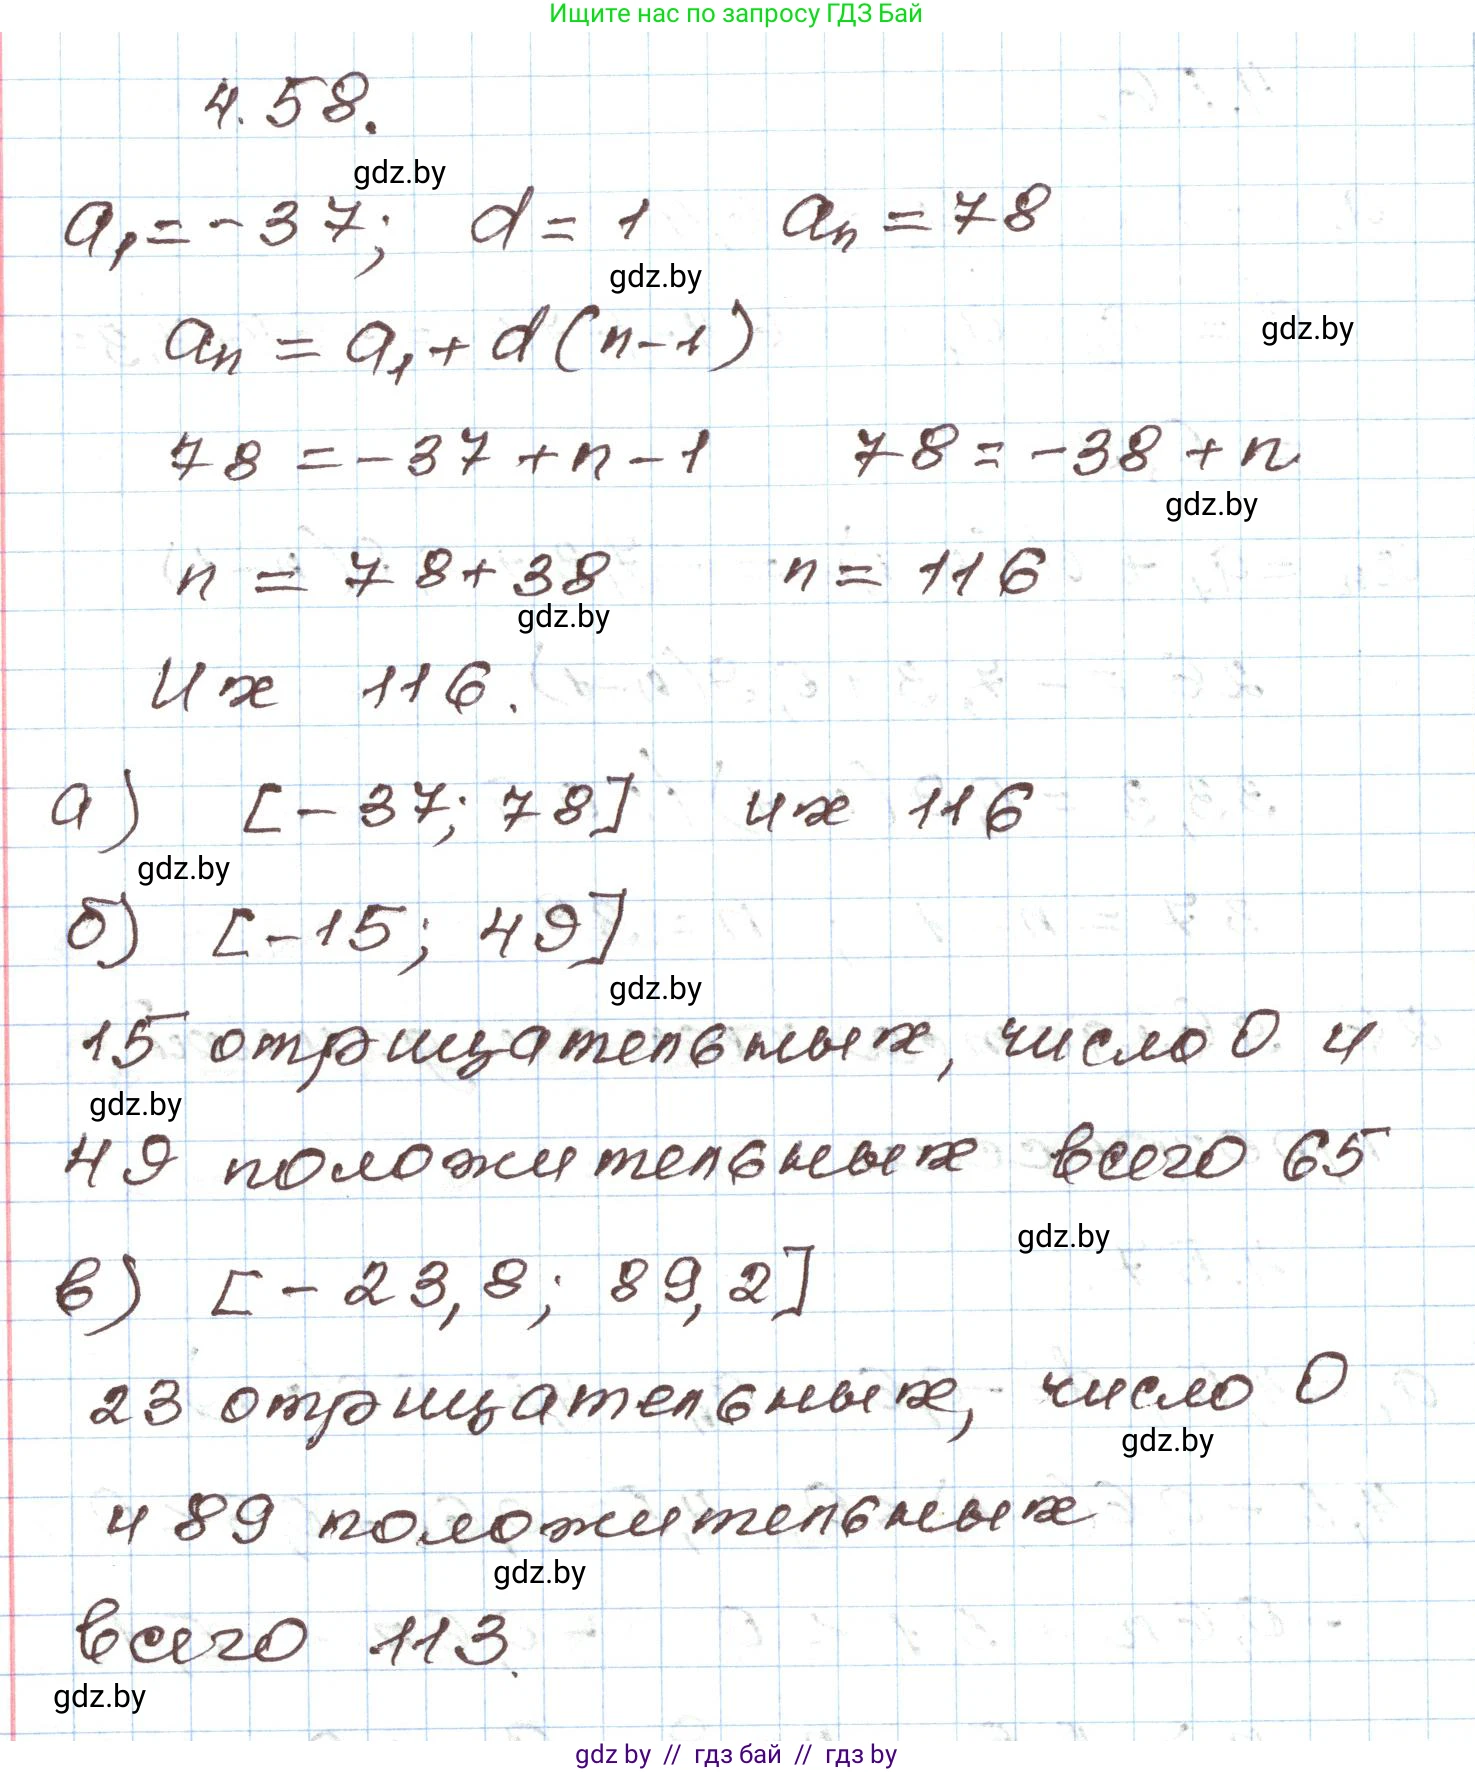 Ищите нас по запросу ГДЗ Бай
4.58.
gdz.by
a₁ = -37; d = 1 aₙ = 78
gdz.by
gdz.by
aₙ = a₁ + d(n-1)
78 = -37 + n - 1 78 = -38 + n
gdz.by
n = 78 + 38 n = 116
gdz.by
Их 116.
а) [-37; 78] их 116
gdz.by
б) [-15; 49]
gdz.by
15 отрицательных, число 0 и
gdz.by
49 положительных всего 65
gdz.by
в) [-23,8; 89,2]
23 отрицательных, число 0
gdz.by
и 89 положительных
gdz.by
всего 113.
gdz.by
gdz by // гдз бай // гдз by